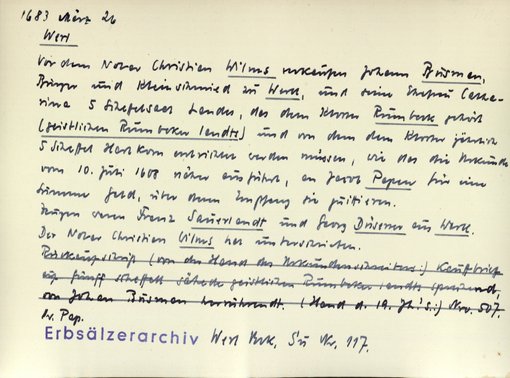 1683 März 26
Werl
Vor dem Notar Christian Wilms verkaufen Johann Büsmen,
Bürger und Kleinschmied zu Werl, und seine Ehefrau Catha-
rina 5 Scheffelsaat Landes, das dem Kloster Rumbeck gehört
(geistlichen Rumbeker landts) und von dem dem Kloster jährlich
5 Scheffel Hartkorn entrichtet werden müssen, wie das die Urkunde
vom 10. Juli 1608 näher ausführt, an Jacob Papen für eine
Summe Geld, über deren Empfang sie quittieren.
Zeugen waren Franz Sauerlandt und Georg Düsener aus Werl.
Der Notar Christian Wilms hat unterschrieben.
Rückaufschrift (von der Hand des Urkundenschreibers:) Kauffbrieff
auf fünff scheffell sahede geistlichen Rumbeker landts sprechend,
von Johan Büsmen herrührendt. (Hand d. 19. Jh's:) Nro. 507.
Or. Pap.
Erbsälzerarchiv Werl Urk, Nr. 117.